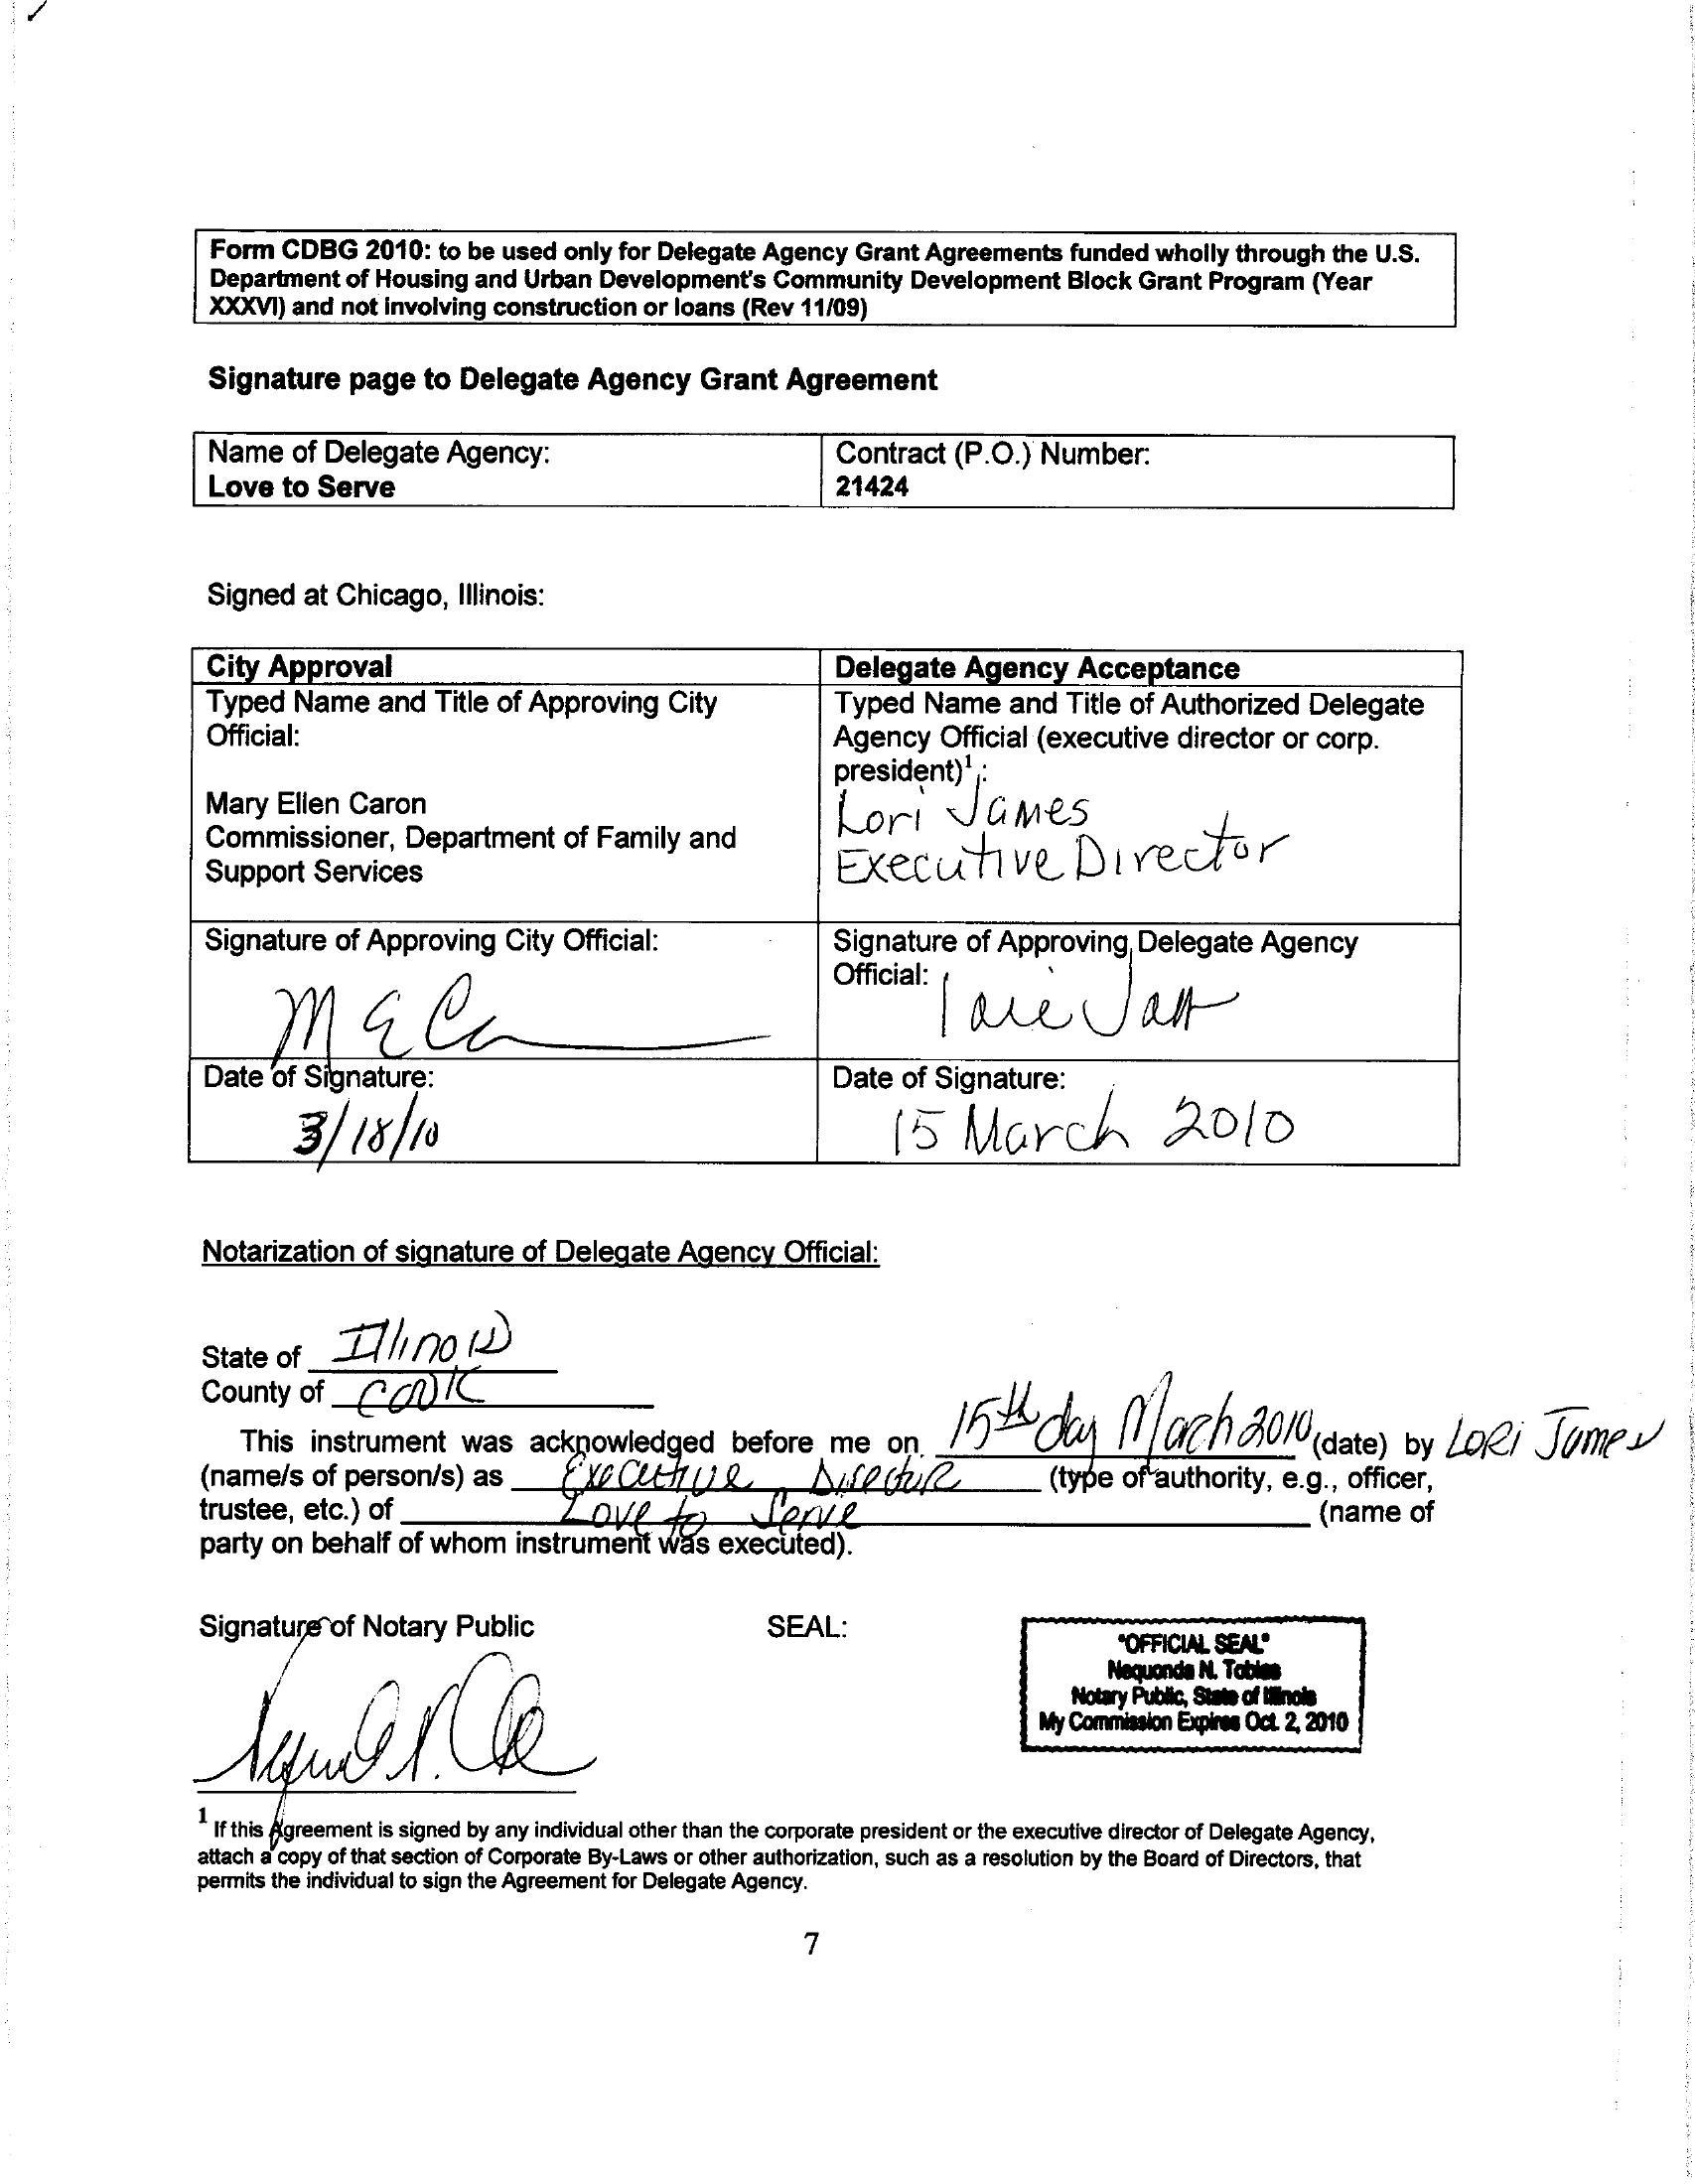 Form CDBG 2010: to be used only for Delegate Agency Grant Agreements funded wholly through the U.S.
Department of Housing and Urban Development's Community Development Block Grant Program (Year
XXXVI) and not involving construction or loans (Rev 11/09)
Signature page to Delegate Agency Grant Agreement
Name of Delegate Agency:
Love to Serve
Contract (P.O.) Number:
21424
Signed at Chicago, Illinois:
City Approval
Typed Name and Title of Approving City
Official:
Mary Ellen Caron
Commissioner, Department of Family and
Support Services
Delegate Agency Acceptance
Typed Name and Title of Authorized Delegate
Agency Official (executive director or corp.
president)¹:
Lori James
Executive Director
Signature of Approving City Official:
Signature of Approving Delegate Agency
Official:
Date of Signature:
3/18/10
Date of Signature:
15 March 2010
Notarization of signature of Delegate Agency Official:
State of Illinois
County of Cook
This instrument was acknowledged before me on 15th day March 2010 (date) by LORi James
(name/s of person/s) as Executive Director (type of authority, e.g., officer,
trustee, etc.) of Love to Serve (name of
party on behalf of whom instrument was executed).
Signature of Notary Public
SEAL:
"OFFICIAL SEAL"
Nequonda N. Tobias
Notary Public, State of Illinois
My Commission Expires Oct. 2, 2010
¹ If this Agreement is signed by any individual other than the corporate president or the executive director of Delegate Agency,
attach a copy of that section of Corporate By-Laws or other authorization, such as a resolution by the Board of Directors, that
permits the individual to sign the Agreement for Delegate Agency.
7